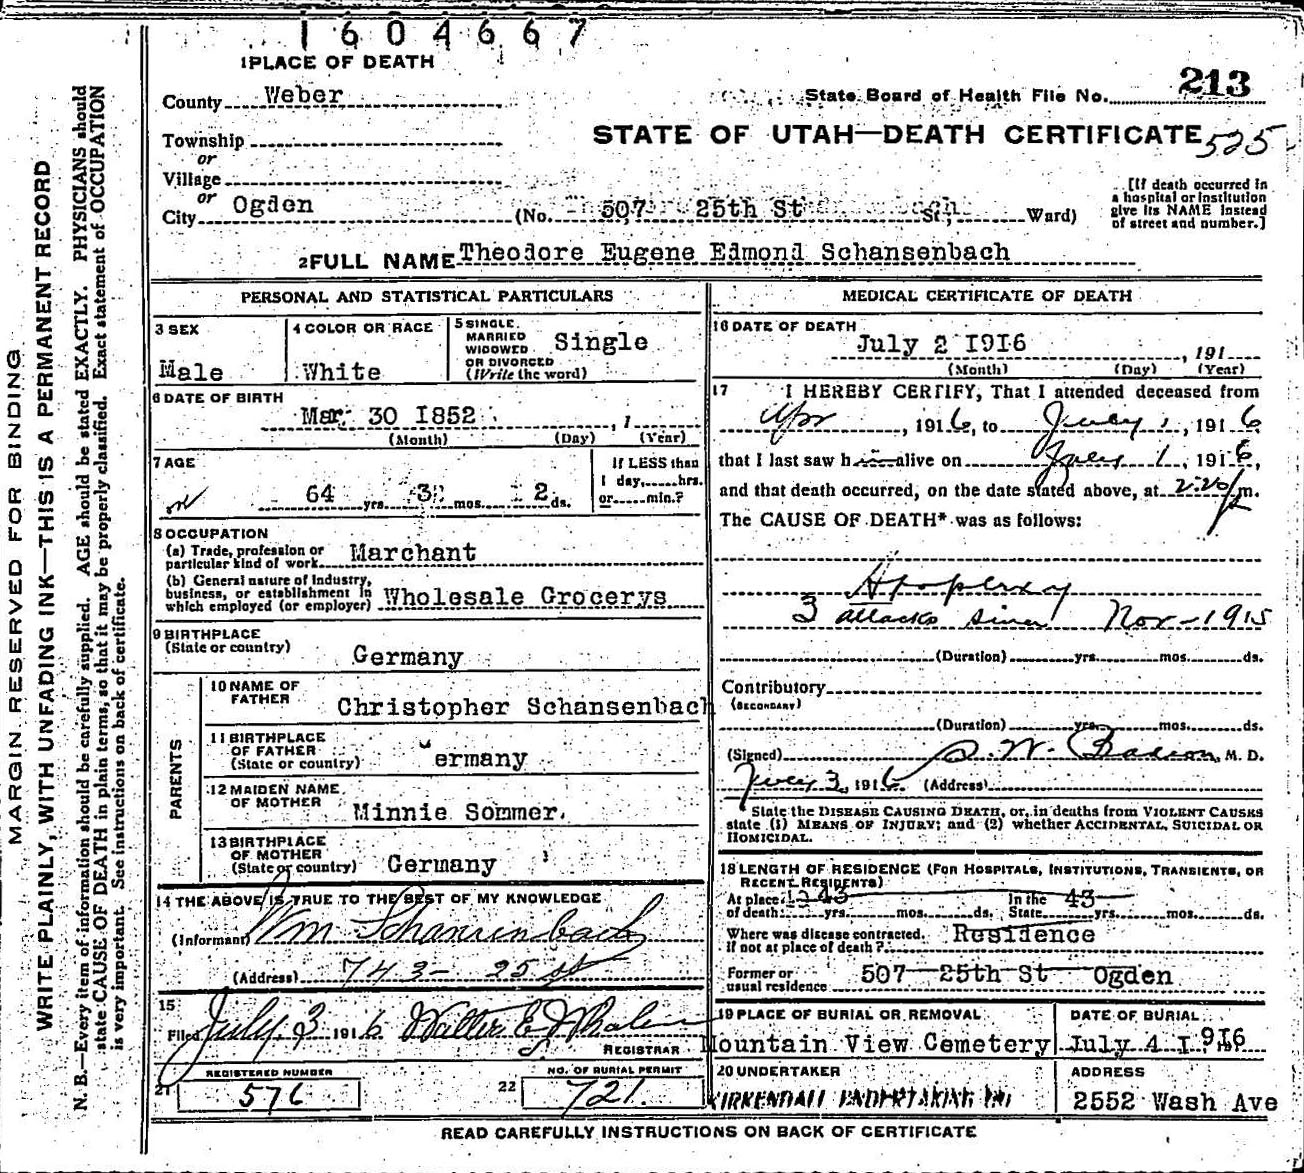 1604667
1 PLACE OF DEATH
County Weber
State Board of Health File No. 213
Township
or
STATE OF UTAH—DEATH CERTIFICATE 525
Village
or
City Ogden (No. 507 25th St St; Ward)
[If death occurred in
a hospital or institution
give its NAME instead
of street and number.]
2 FULL NAME Theodore Eugene Edmond Schansenbach
PERSONAL AND STATISTICAL PARTICULARS
3 SEX
Male
4 COLOR OR RACE
White
5 SINGLE
MARRIED
WIDOWED
OR DIVORCED
(Write the word)
Single
6 DATE OF BIRTH
Mar 30 1852 , 1
(Month) (Day) (Year)
7 AGE
64 yrs. 3 mos. 2 ds.
If LESS than
1 day,......hrs.
or......min.?
8 OCCUPATION
(a) Trade, profession or
particular kind of work Marchant
(b) General nature of Industry,
business, or establishment in
which employed (or employer) Wholesale Grocerys
9 BIRTHPLACE
(State or country)
Germany
PARENTS
10 NAME OF
FATHER
Christopher Schansenbach
11 BIRTHPLACE
OF FATHER
(State or country) Germany
12 MAIDEN NAME
OF MOTHER
Minnie Sommer.
13 BIRTHPLACE
OF MOTHER
(State or country) Germany
14 THE ABOVE IS TRUE TO THE BEST OF MY KNOWLEDGE
(Informant) Wm Schansenbach
(Address) 743 - 25 st
15
Filed July 3 1916 Walter E Whalen
REGISTRAR
REGISTERED NUMBER
21 576
NO. OF BURIAL PERMIT
22 721
MEDICAL CERTIFICATE OF DEATH
16 DATE OF DEATH
July 2 1916 , 191
(Month) (Day) (Year)
17 I HEREBY CERTIFY, That I attended deceased from
Apr , 1916, to July 1, 1916
that I last saw him alive on July 1, 1916,
and that death occurred, on the date stated above, at 2:20 p m.
The CAUSE OF DEATH* was as follows:
Apoplexy
3 attacks since Nov - 1915
(Duration) yrs. mos. ds.
Contributory
(SECONDARY)
(Duration) yrs. mos. ds.
(Signed) M. D.
July 3, 1916 (Address)
* State the DISEASE CAUSING DEATH, or, in deaths from VIOLENT CAUSES
state (1) MEANS OF INJURY; and (2) whether ACCIDENTAL, SUICIDAL OR
HOMICIDAL.
18 LENGTH OF RESIDENCE (FOR HOSPITALS, INSTITUTIONS, TRANSIENTS, OR
RECENT RESIDENTS)
At place
of death 43 yrs. mos. ds.
In the
State 43 yrs. mos. ds.
Where was disease contracted.
If not at place of death? Residence
Former or
usual residence 507 25th St Ogden
19 PLACE OF BURIAL OR REMOVAL
Mountain View Cemetery
DATE OF BURIAL
July 4 1916
20 UNDERTAKER
KIRKENDALL UNDERTAKING
ADDRESS
2552 Wash Ave
READ CAREFULLY INSTRUCTIONS ON BACK OF CERTIFICATE
MARGIN RESERVED FOR BINDING
WRITE PLAINLY, WITH UNFADING INK—THIS IS A PERMANENT RECORD
N. B.—Every item of information should be carefully supplied. AGE should be stated EXACTLY. PHYSICIANS should
state CAUSE OF DEATH in plain terms, so that it may be properly classified. Exact statement of OCCUPATION
is very important. See instructions on back of certificate.